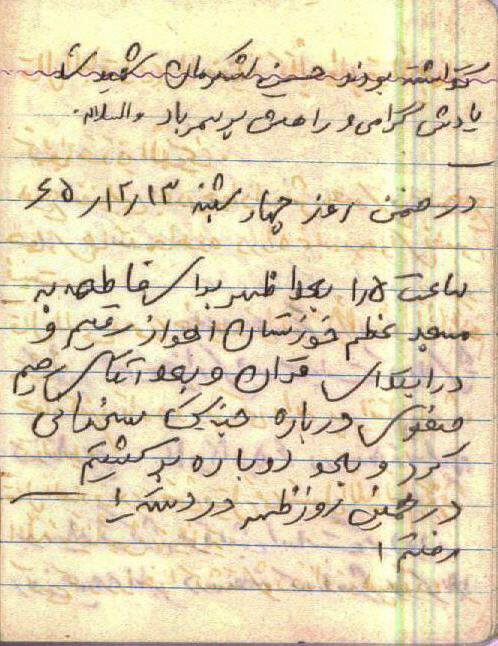 گذاشته بودند همین لشکرمان شهید شد
یادش گرامی و راهش پر رهرو باد والسلام.
در ضمن روز چهار شنبه ۶۵/۱۲/۱۳
ساعت ۱/۵ بعد از ظهر برای فاطمه به
مسجد عظم خوزستان اهواز رفتیم و
در ابتدای قران و بعد آقای رحیم
صفوی درباره جنگ سخنانی
کرد و بعد دوباره برگشتیم
در همین روز ظهر در دسته را
رفتم ا